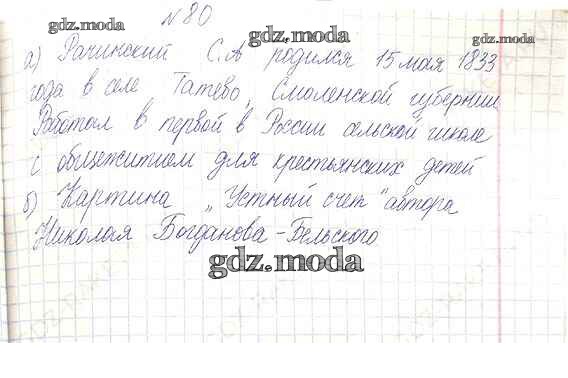 №80
gdz.moda
gdz.moda
gdz.moda
а) Рачинский С.А родился 15 мая 1833
года в селе Татево, Смоленской губернии
Работал в первой в России сельской школе
с общежитием для крестьянских детей
б) Картина „Устный счет" автора
Николая Богданова-Бельского
gdz.moda